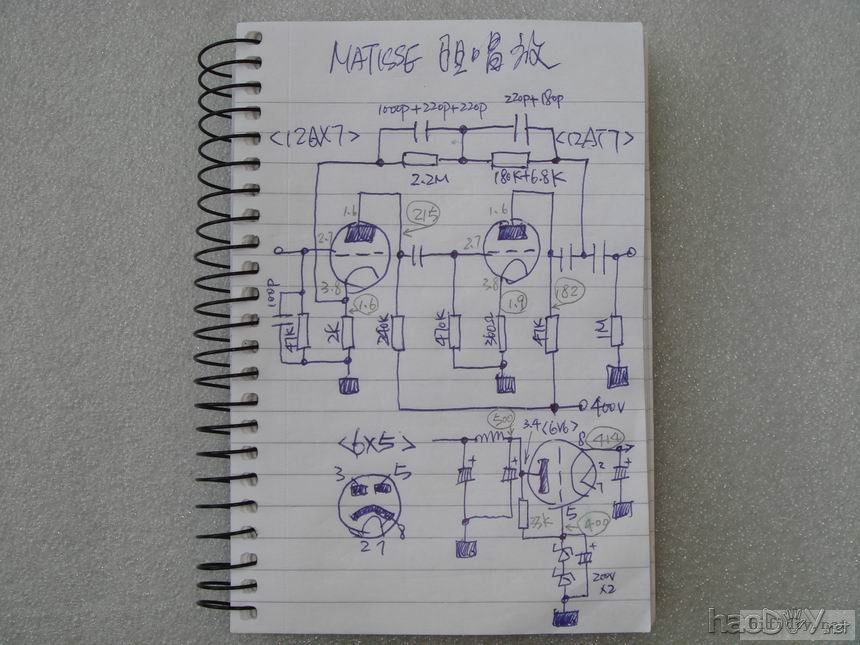 MATISSE 胆唱放
1000p+220p+220p
220p+180p
<12AX7>
<12AT7>
2.2M
180K+6.8K
1.6
215
1.6
2.7
2.7
3.8
3.8
100p
1.6
1.9
182
47K
2K
240K
470K
360Ω
47K
1M
400V
500
3.4
<6V6>
8
414
<6X5>
3
5
2
7
5
400
33K
8
2 7
200V
X2